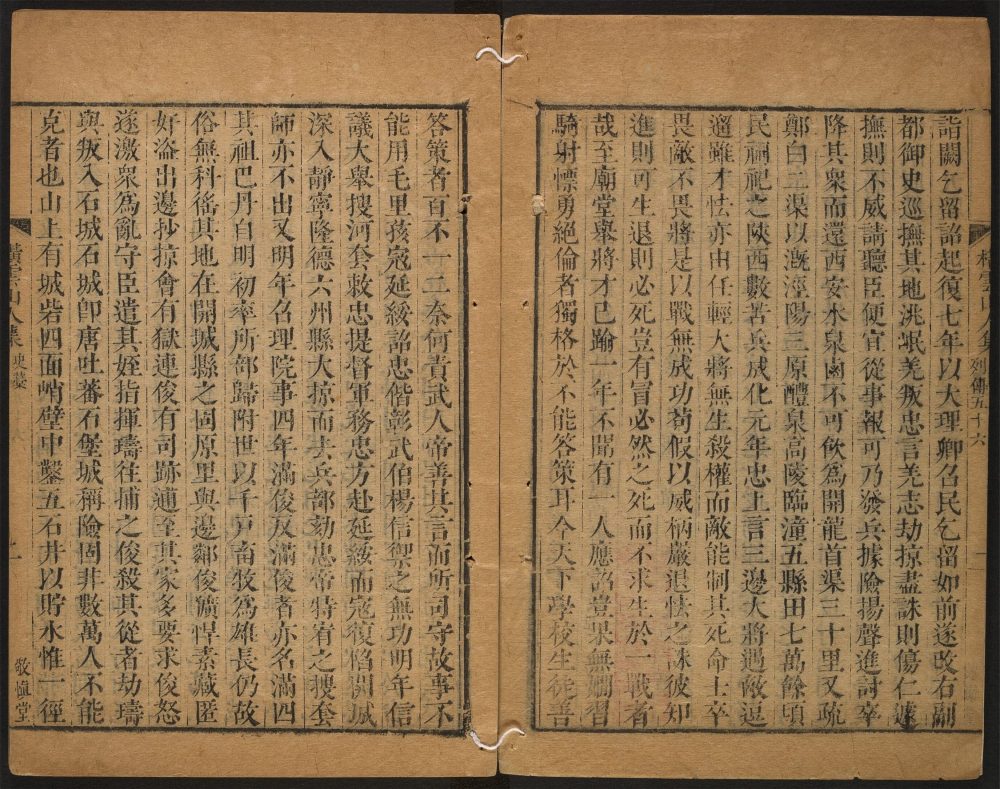 詣闕乞留詔起復七年以大理卿召民乞留如前遂改右副
都御史巡撫其地洮岷羌叛忠言羌志劫掠盡誅則傷仁遽
撫則不威請聽臣便宜從事報可乃發兵據險揚聲進討卒
降其衆而還西安水泉鹵不可飲為開龍首渠三十里又疏
鄭白二渠以漑涇陽三原醴泉高陵臨潼五縣田七萬餘頃
民祠祀之陝西數苦兵成化元年忠上言三邊大將遇敵逗
遛雖才怯亦由任輕大將無生殺權而敵能制其死命士卒
畏敵不畏將是以戰無成功苟假以威柄嚴退怯之誅彼知
進則可生退則必死豈有冒必然之死而不求生於一戰者
哉至廟堂舉將才已踰一年不聞有一人應詔豈果無嫺習
騎射慓勇絕倫者獨格於不能答策耳今天下學校生徒善
橫雲山人集 列傳五十六
答策者百不一二奈何責武人帝善其言而所司守故事不
能用毛里孩寇延綏詔忠偕彰武伯楊信禦之無功明年信
議大舉搜河套敕忠提督軍務忠方赴延綏而寇復陷開城
深入靜寧隆德六州縣大掠而去兵部劾忠帝特宥之搜套
師亦不出又明年召理院事四年滿俊反滿俊者亦名滿四
其祖巴丹自明初率所部歸附世以千戸畜牧為雄長仍故
俗無科徭其地在開城縣之固原里與邊鄰俊獷悍素藏匿
奸盜出邊抄掠會有獄連俊有司跡逋至其家多要求俊怒
遂激衆為亂守臣遣其姪指揮璹往捕之俊殺其從者劫璹
與叛入石城石城卽唐吐蕃石堡城稱險固非數萬人不能
克者也山上有城砦四面峭壁中鑿五石井以貯水惟一徑
橫雲山人集 史藁
敬愼堂